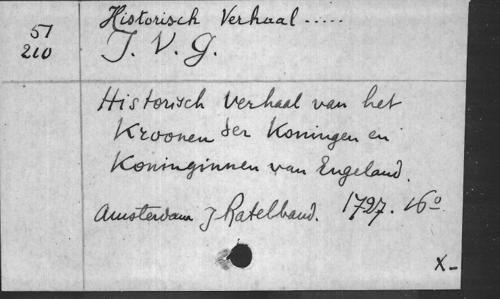 Historisch Verhaal .....
51
210
J. V. G.
Historisch verhaal van het
Kroonen der Koningen en
Koninginnen van Engeland.
Amsterdam J Ratelband. 1727. 16º
X-